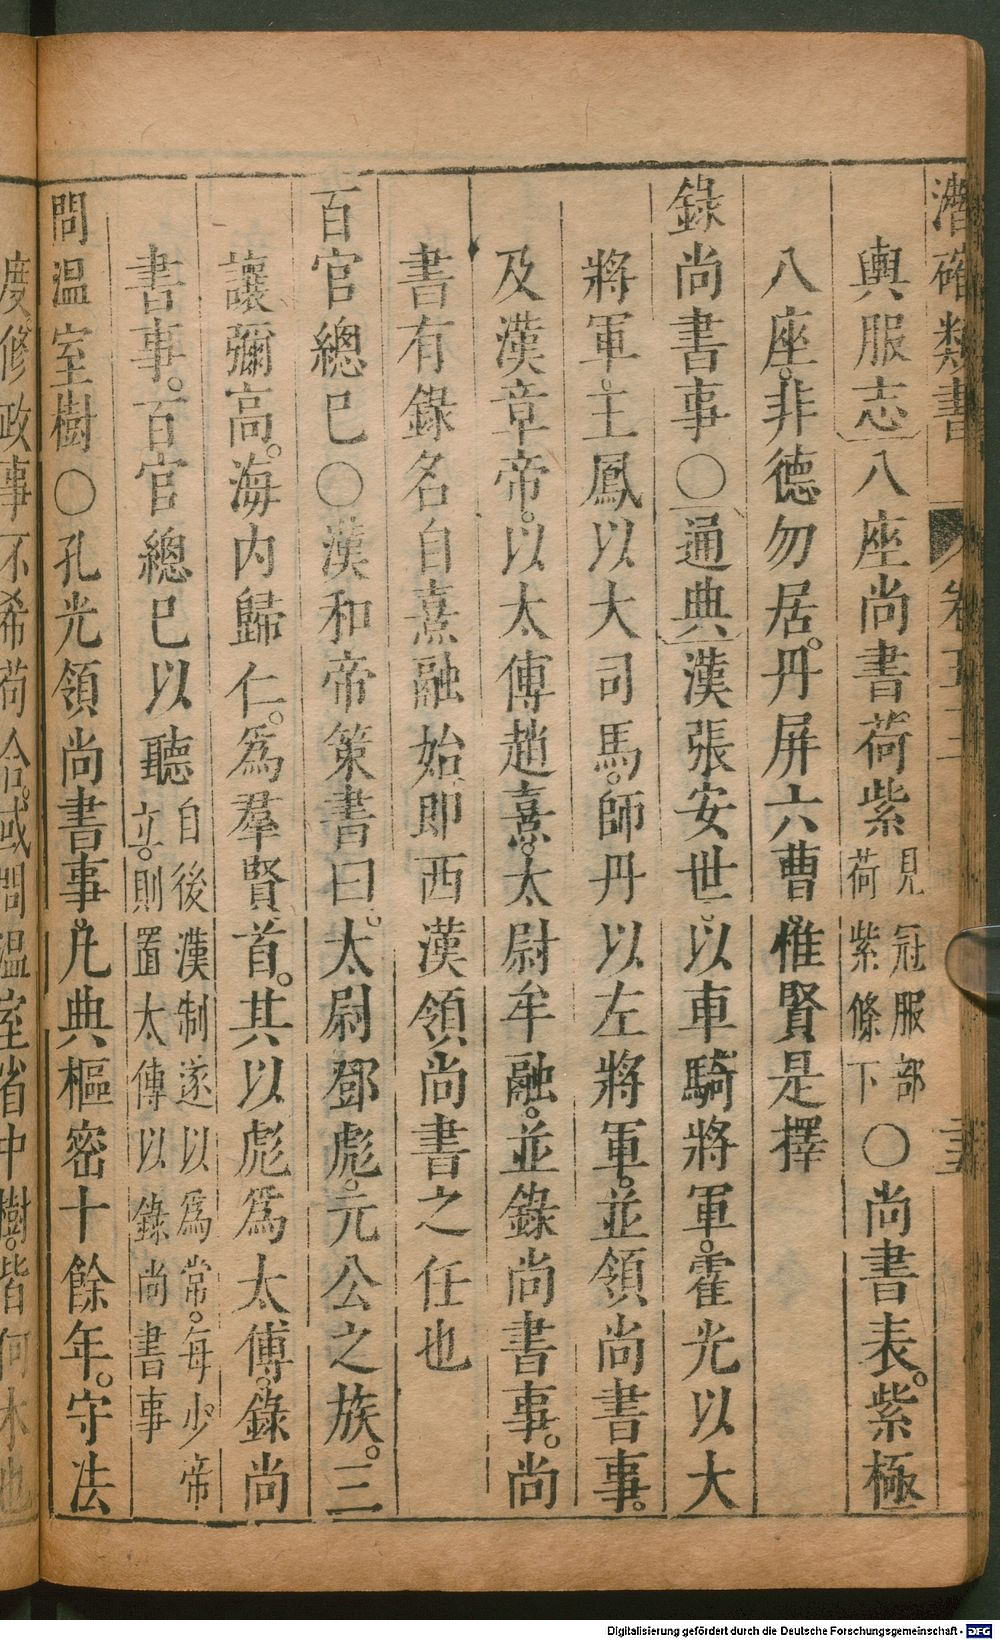 潛確類書 卷五十二 三五
輿服志八座尚書荷紫見冠服部荷紫絛下○尚書表。紫極
八座。非德勿居。丹屏六曹。惟賢是擇
錄尚書事○通典漢張安世。以車騎將軍。霍光以大
將軍。王鳳以大司馬。師丹以左將軍。並領尚書事。
及漢章帝。以太傅趙熹。太尉牟融。並錄尚書事。尚
書有錄名自熹融始即西漢領尚書之任也
百官總巳○漢和帝策書曰。太尉鄧彪。元公之族。三
讓彌高。海內歸仁。爲羣賢首。其以彪爲太傅。錄尚
書事。百官總巳以聽自後漢制遂以爲常。每少帝立。則置太傅以錄尚書事
問溫室樹○孔光領尚書事。凡典樞密十餘年。守法
度修政事不希苟合。或問溫室省中樹。皆何木也
Digitalisierung gefördert durch die Deutsche Forschungsgemeinschaft - DFG